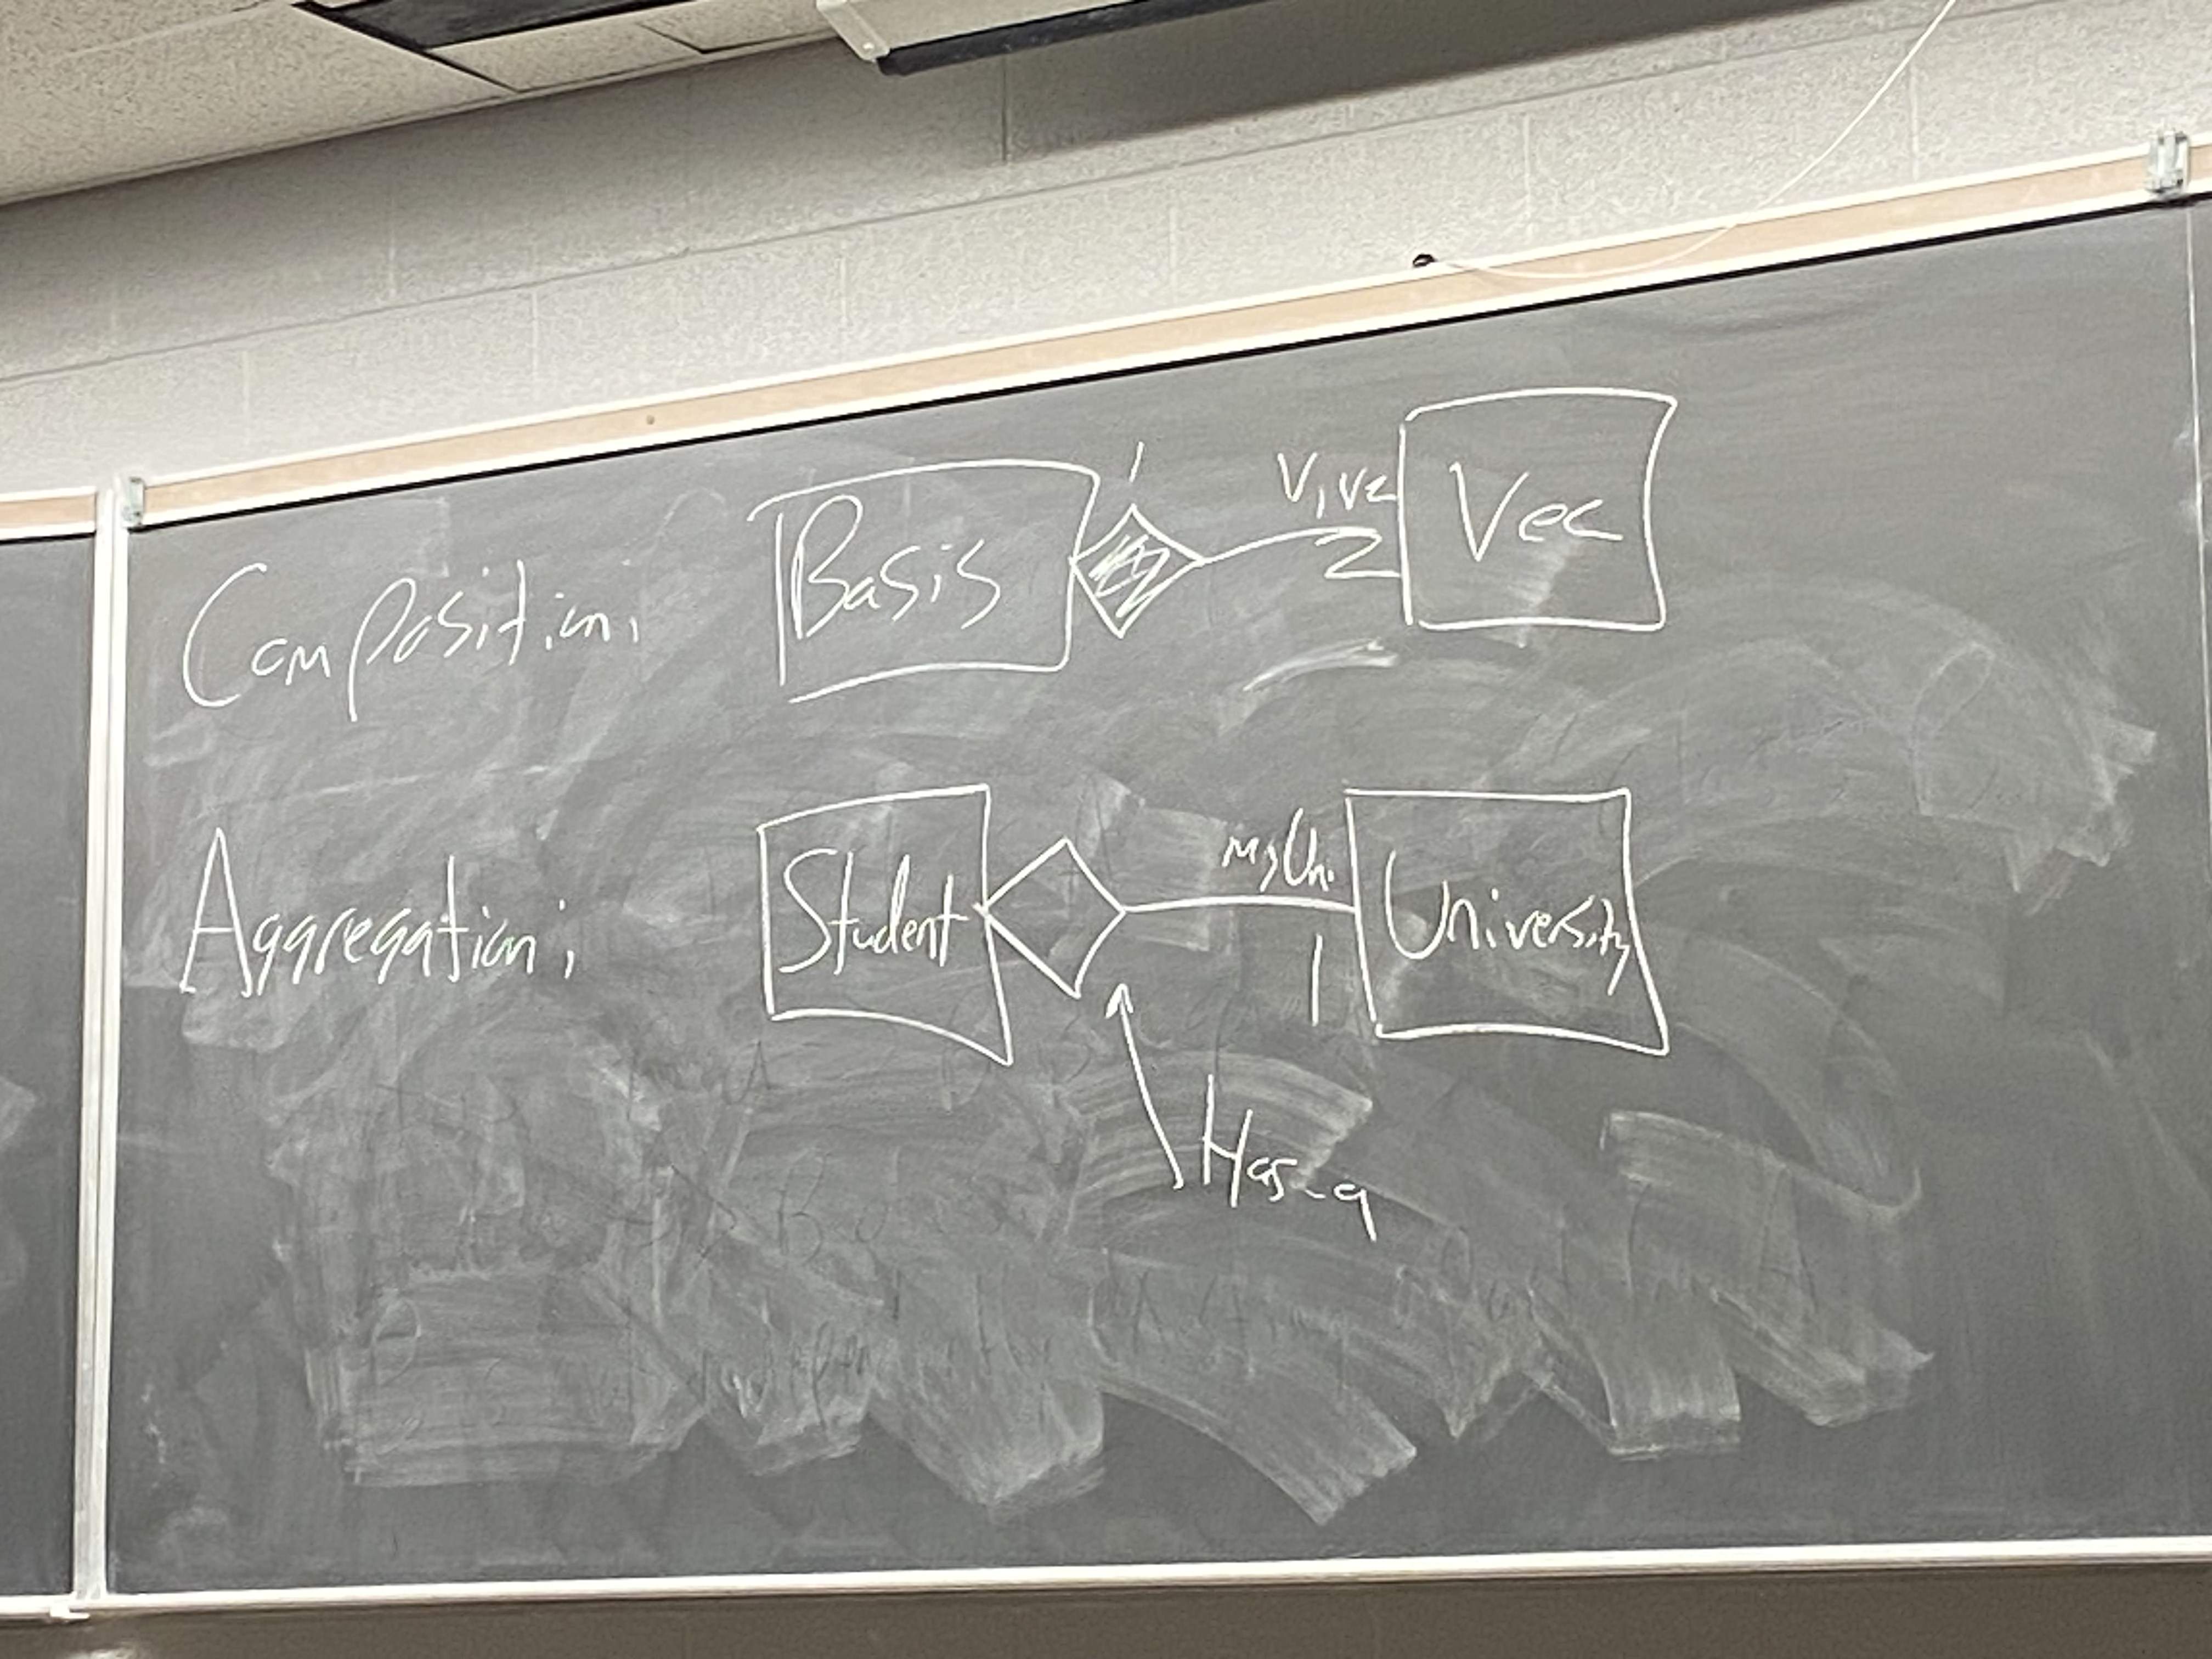 Composition:
Basis
1
v1, v2
2
Vec
Aggregation:
Student
myUni
1
University
Has-a